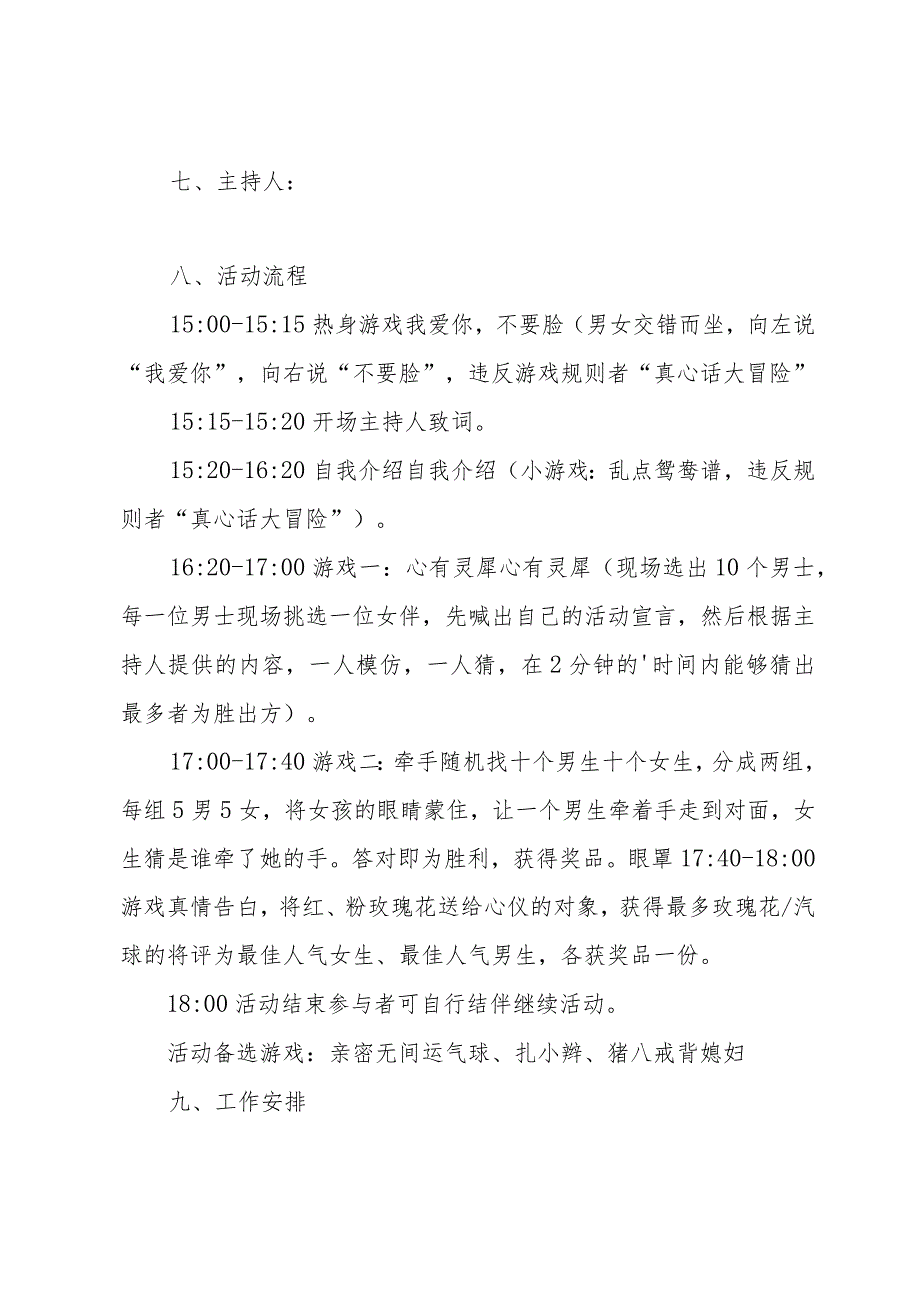 七、主持人：
八、活动流程
15:00-15:15 热身游戏我爱你，不要脸（男女交错而坐，向左说
“我爱你”，向右说“不要脸”，违反游戏规则者“真心话大冒险”
15:15-15:20 开场主持人致词。
15:20-16:20 自我介绍自我介绍（小游戏：乱点鸳鸯谱，违反规
则者“真心话大冒险”）。
16:20-17:00 游戏一：心有灵犀心有灵犀（现场选出 10 个男士，
每一位男士现场挑选一位女伴，先喊出自己的活动宣言，然后根据主
持人提供的内容，一人模仿，一人猜，在 2 分钟的'时间内能够猜出
最多者为胜出方）。
17:00-17:40 游戏二：牵手随机找十个男生十个女生，分成两组，
每组 5 男 5 女，将女孩的眼睛蒙住，让一个男生牵着手走到对面，女
生猜是谁牵了她的手。答对即为胜利，获得奖品。眼罩 17:40-18:00
游戏真情告白，将红、粉玫瑰花送给心仪的对象，获得最多玫瑰花/汽
球的将评为最佳人气女生、最佳人气男生，各获奖品一份。
18:00 活动结束参与者可自行结伴继续活动。
活动备选游戏：亲密无间运气球、扎小辫、猪八戒背媳妇
九、工作安排